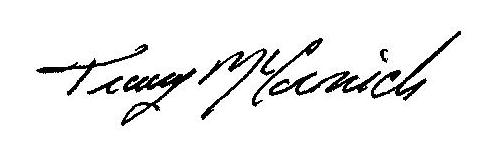 Tracy McCornick